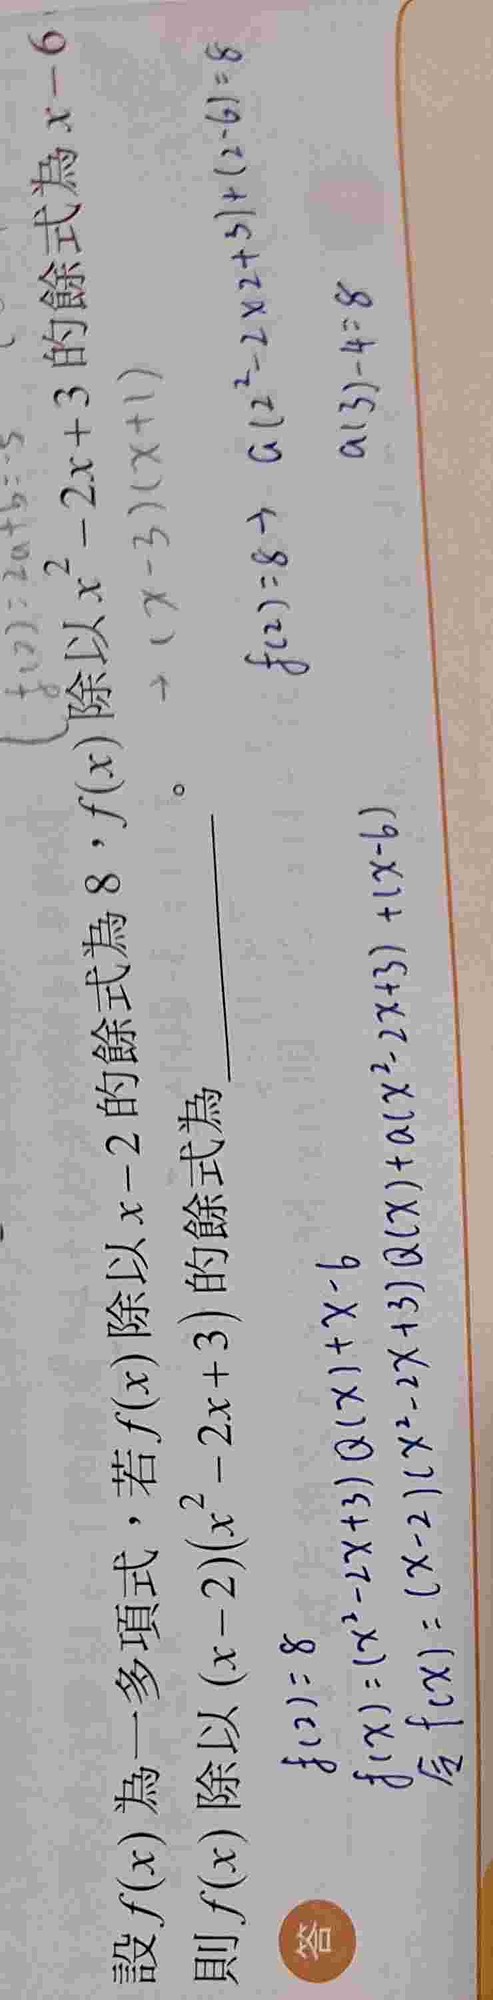 f(2)=2a+b=-5
設 f(x) 為一多項式，若 f(x) 除以 x-2 的餘式為 8，f(x) 除以 x²-2x+3 的餘式為 x-6
→ (x-3)(x+1)
則 f(x) 除以 (x-2)(x²-2x+3) 的餘式為＿＿＿＿＿＿。
答
f(2)=8
f(x)=(x²-2x+3)Q(x)+x-6
令 f(x)=(x-2)(x²-2x+3)Q(x)+a(x²-2x+3)+(x-6)
f(2)=8→ a(2²-2×2+3)+(2-6)=8
a(3)-4=8